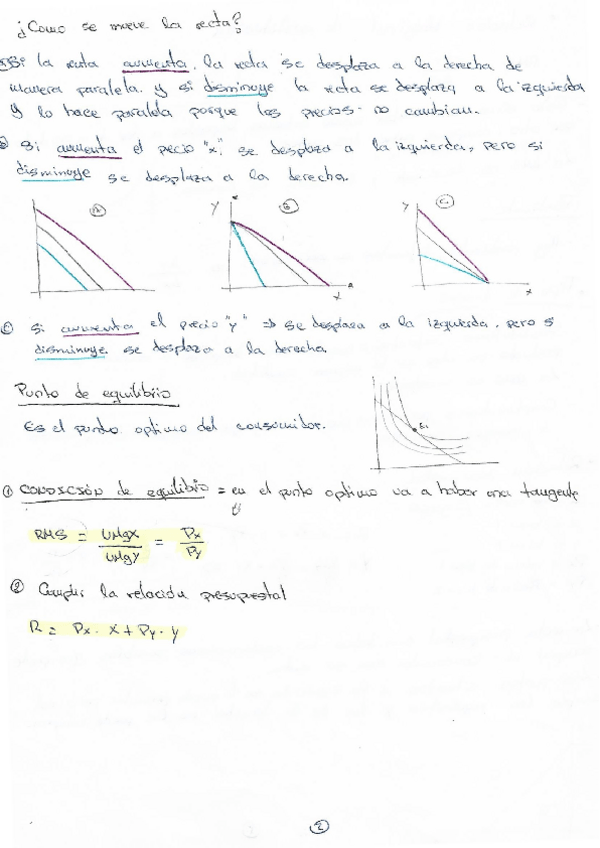 ¿Como se mueve la recta?
Si la renta aumenta, la recta se desplaza a la derecha de
manera paralela. y si disminuye la recta se desplaza a la izquierda
y lo hace paralela porque los precios no cambian.
Si aumenta el pecio "x", se desplaza a la izquierda, pero si
disminuye se desplaza a la derecha.
A
Y B X
Y C X
C Si aumenta el precio "y" => se desplaza a la izquierda. pero si
disminuye se desplaza a la derecha
Punto de equilibrio
Es el punto optimo del consumidor.
E1
① CONDICIÓN de equilibrio = en el punto optimo va a haber una tangente
RMS = UMgX / UMgY = Px / Py
② Cumplir la relación presupuestal
R = Px · X + Py · y
2